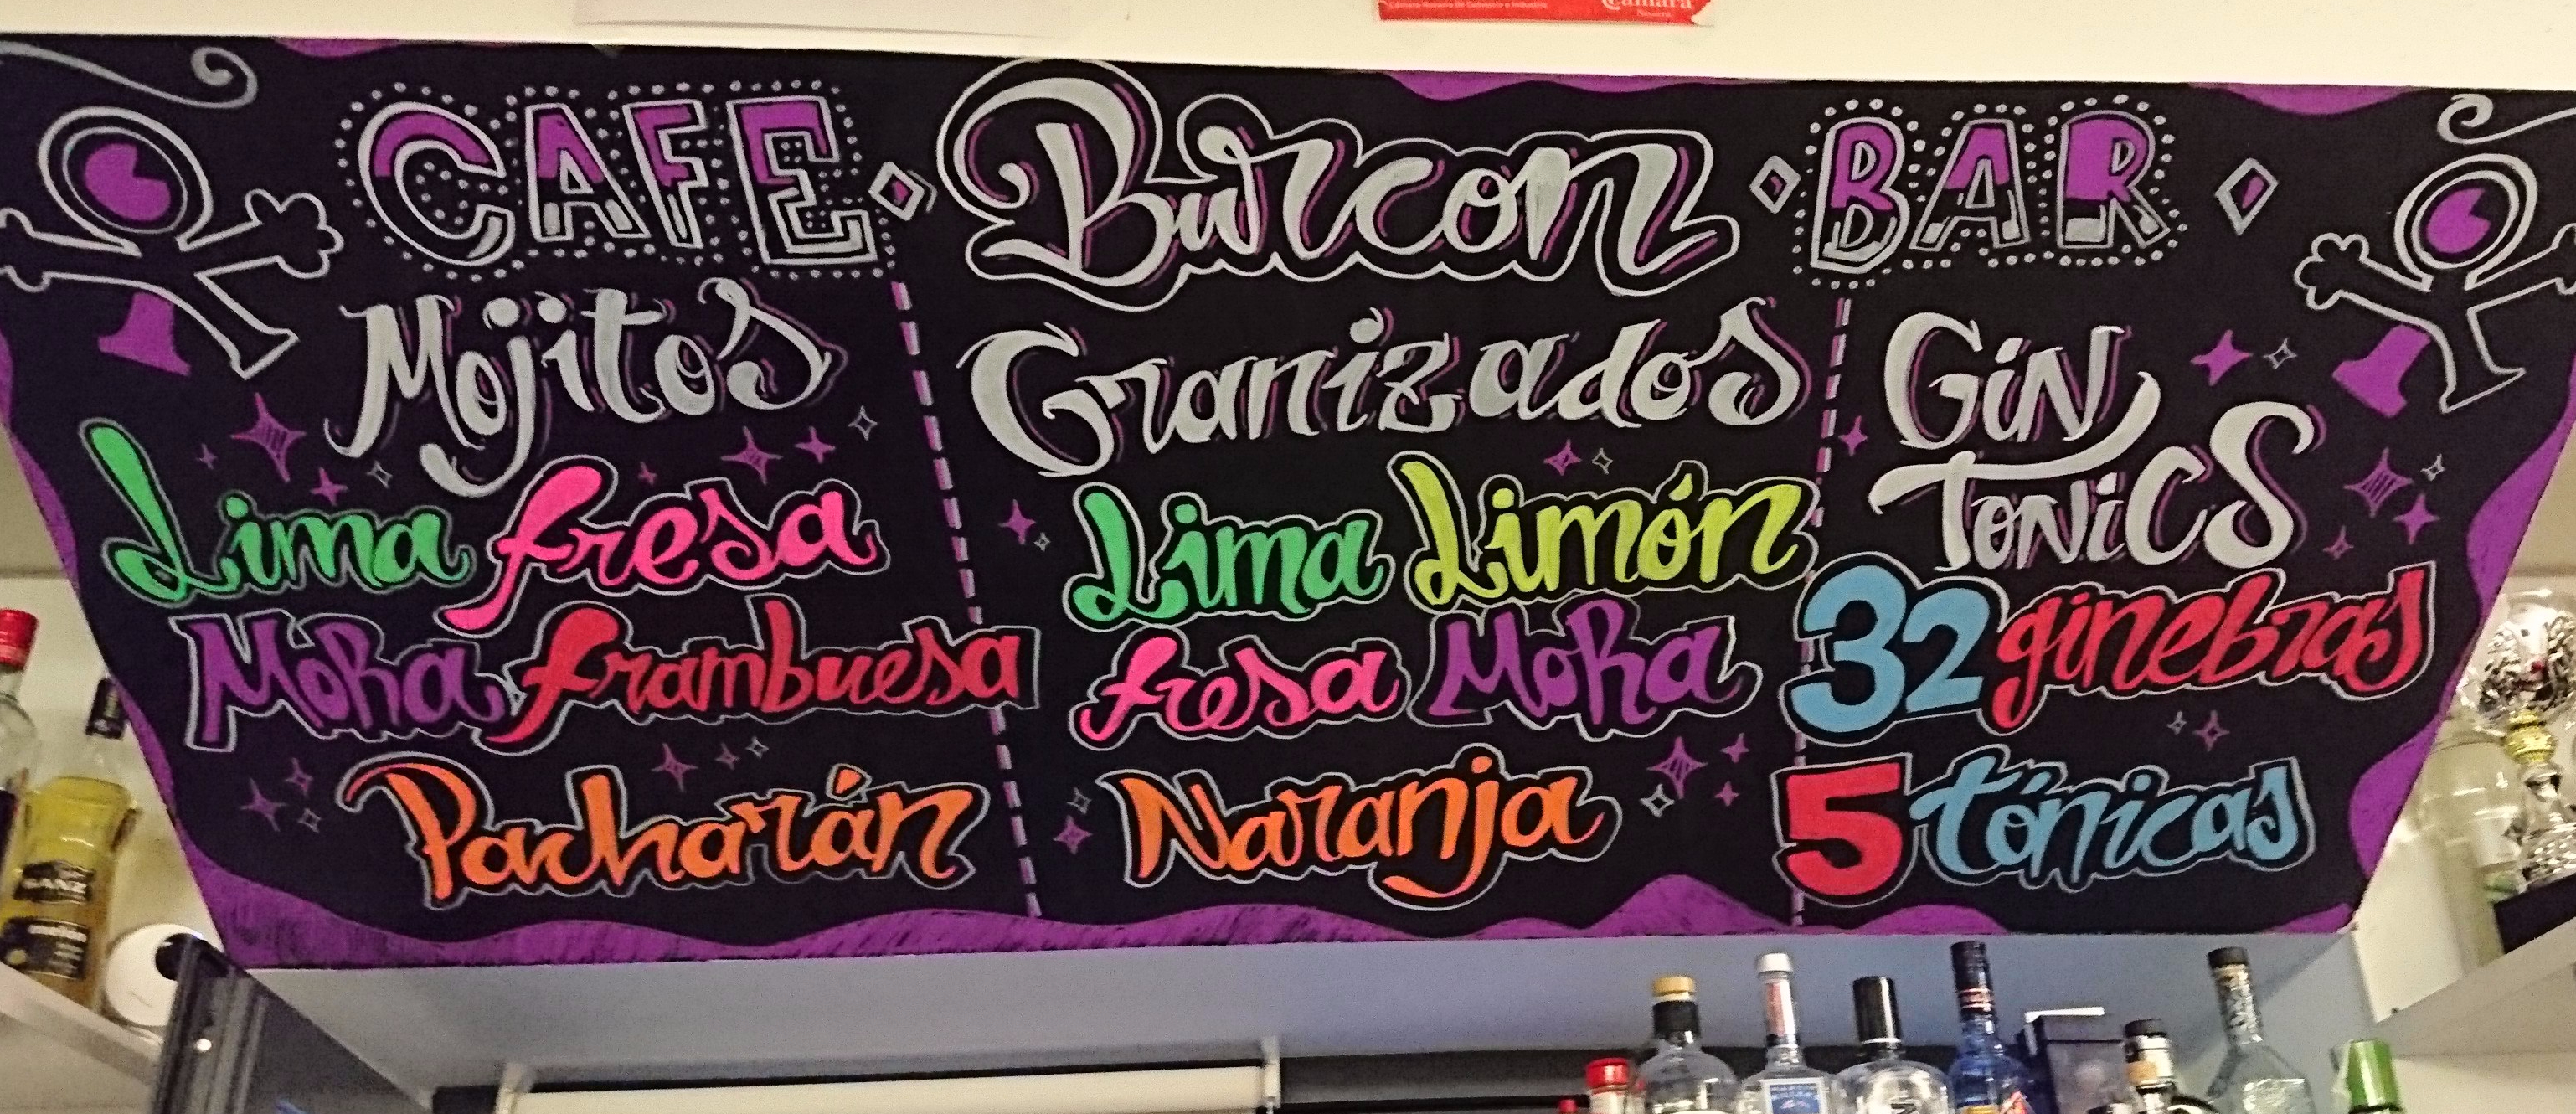 Cámara
CAFE Burcon BAR
Mojitos
Lima fresa
Mora frambuesa
Pacharán
Granizados
Lima Limón
fresa Mora
Naranja
Gin
Tonics
32 ginebras
5 tónicas